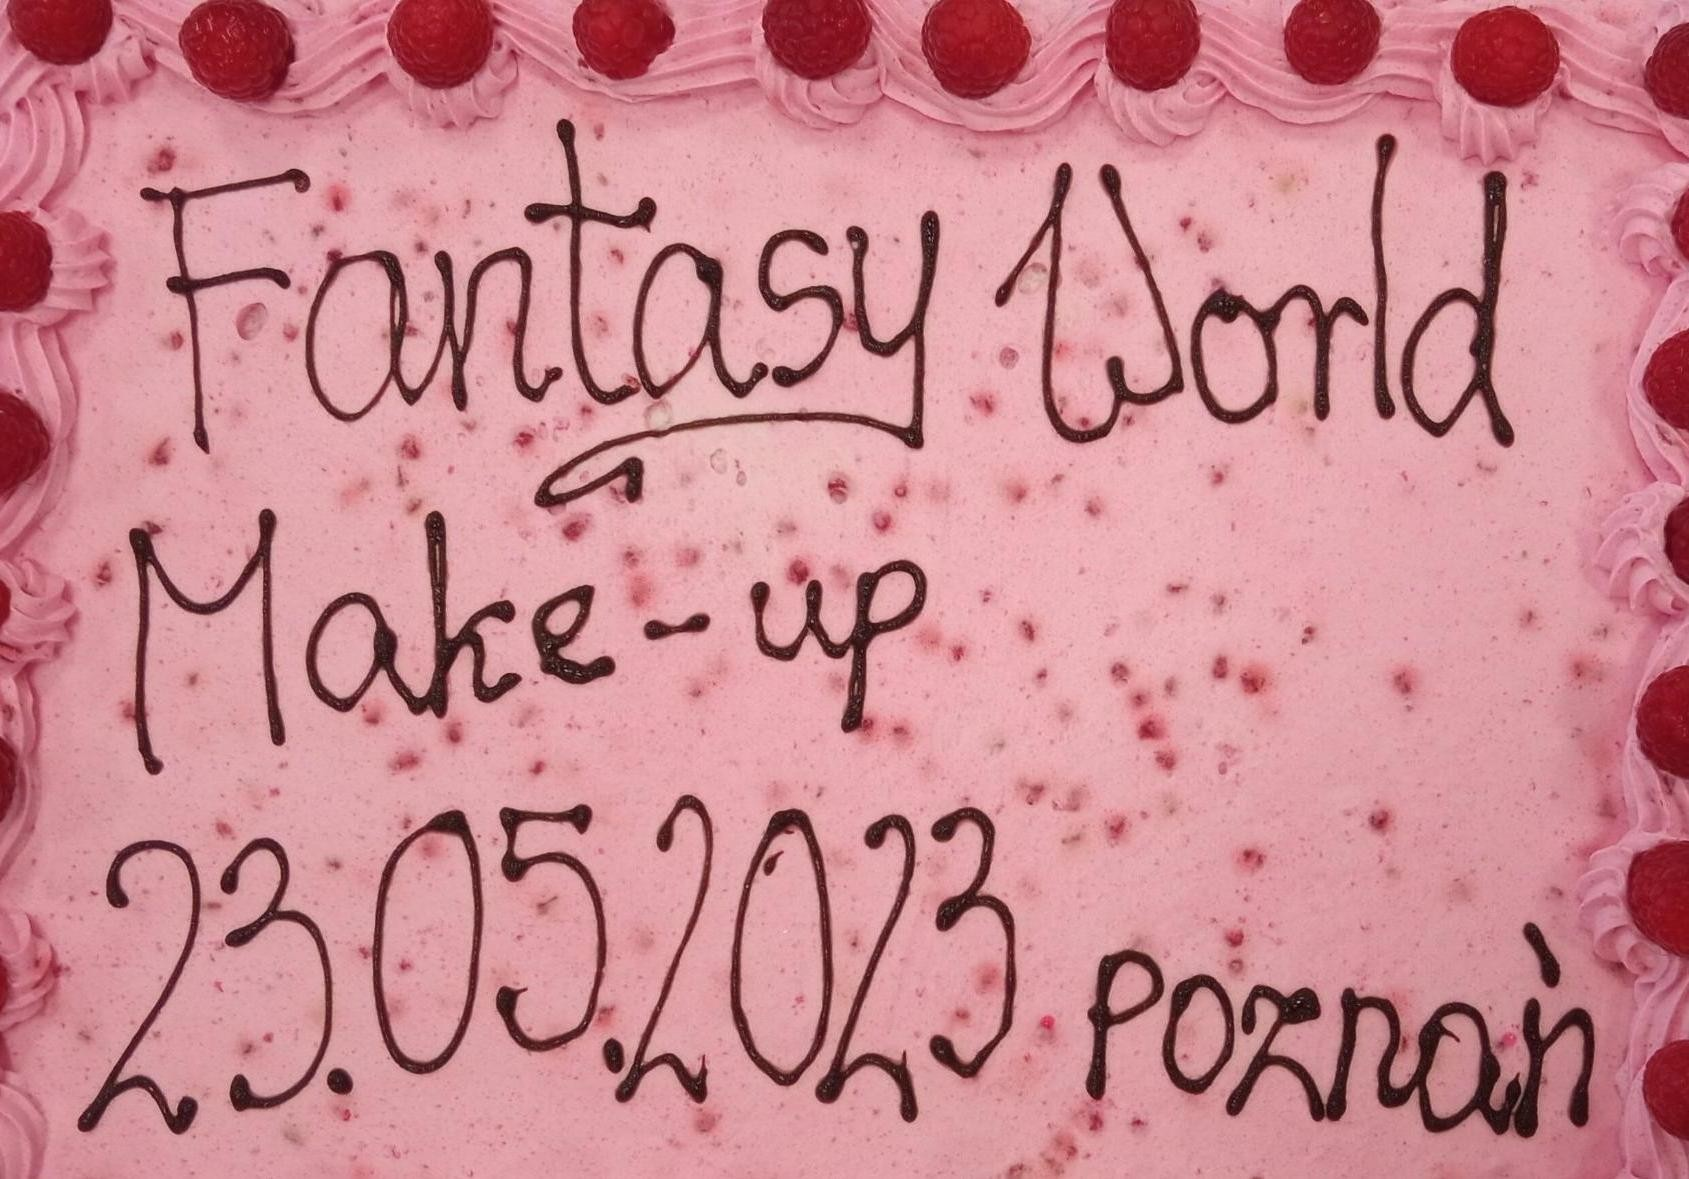 Fantasy World
Make-up
23.05.2023 Poznań